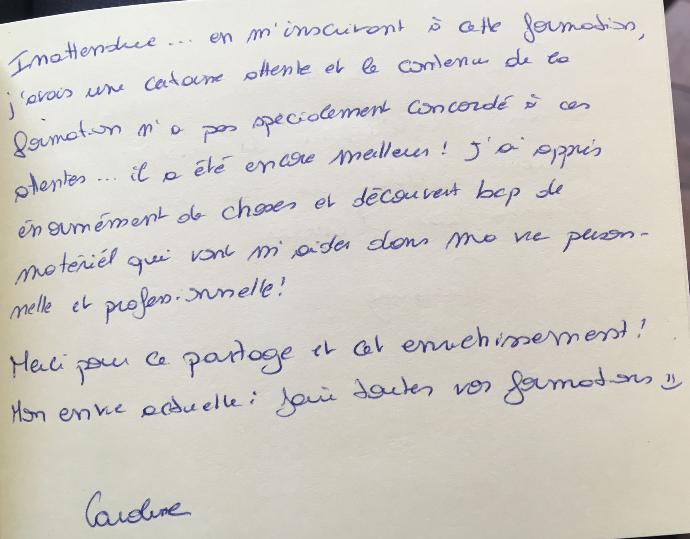 Inattendue... en m'inscrivant à cette formation,
j'avais une certaine attente et le contenu de la
formation n'a pas spécialement concordé à ces
attentes... il a été encore meilleur! J'ai appris
énormément de choses et découvert bcp de
matériel qui vont m'aider dans ma vie person-
nelle et professionnelle!
Merci pour ce partage et cet enrichissement!
Mon envie actuelle: faire toutes vos formations =)
Caroline